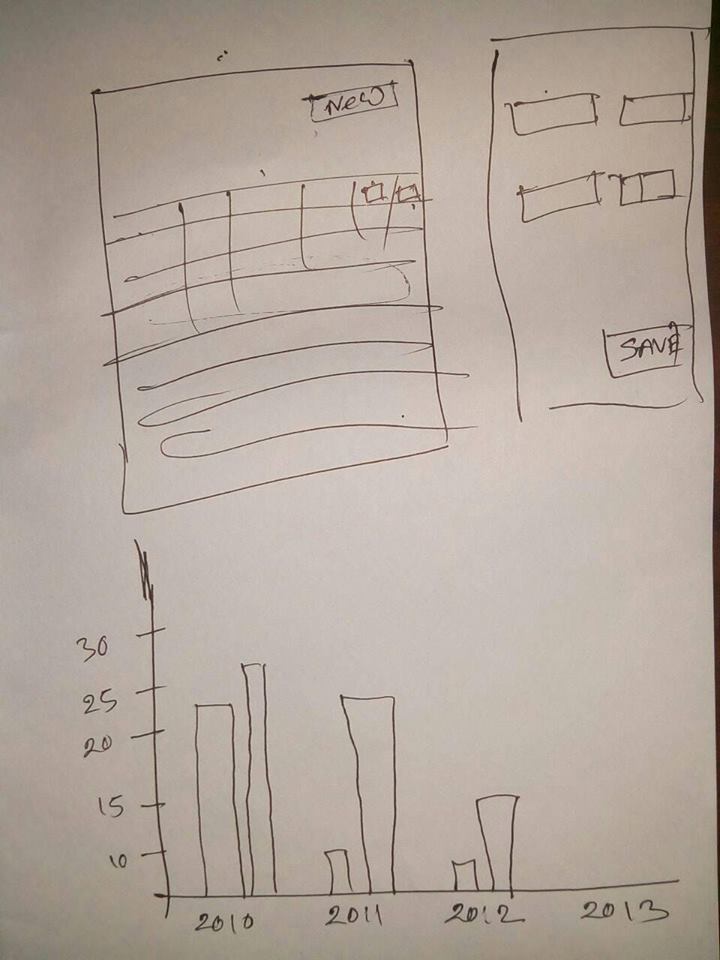 New
SAVE
30
25
20
15
10
2010 2011 2012 2013